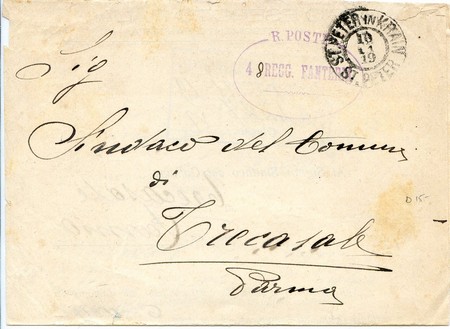 R. POSTE
48 REGG. FANTERIA
ST. PETER IN KRAIN
10
11
19
ST. PETER
Sig
Sindaco del Comune
di
Trecasali
Parma
D 15-